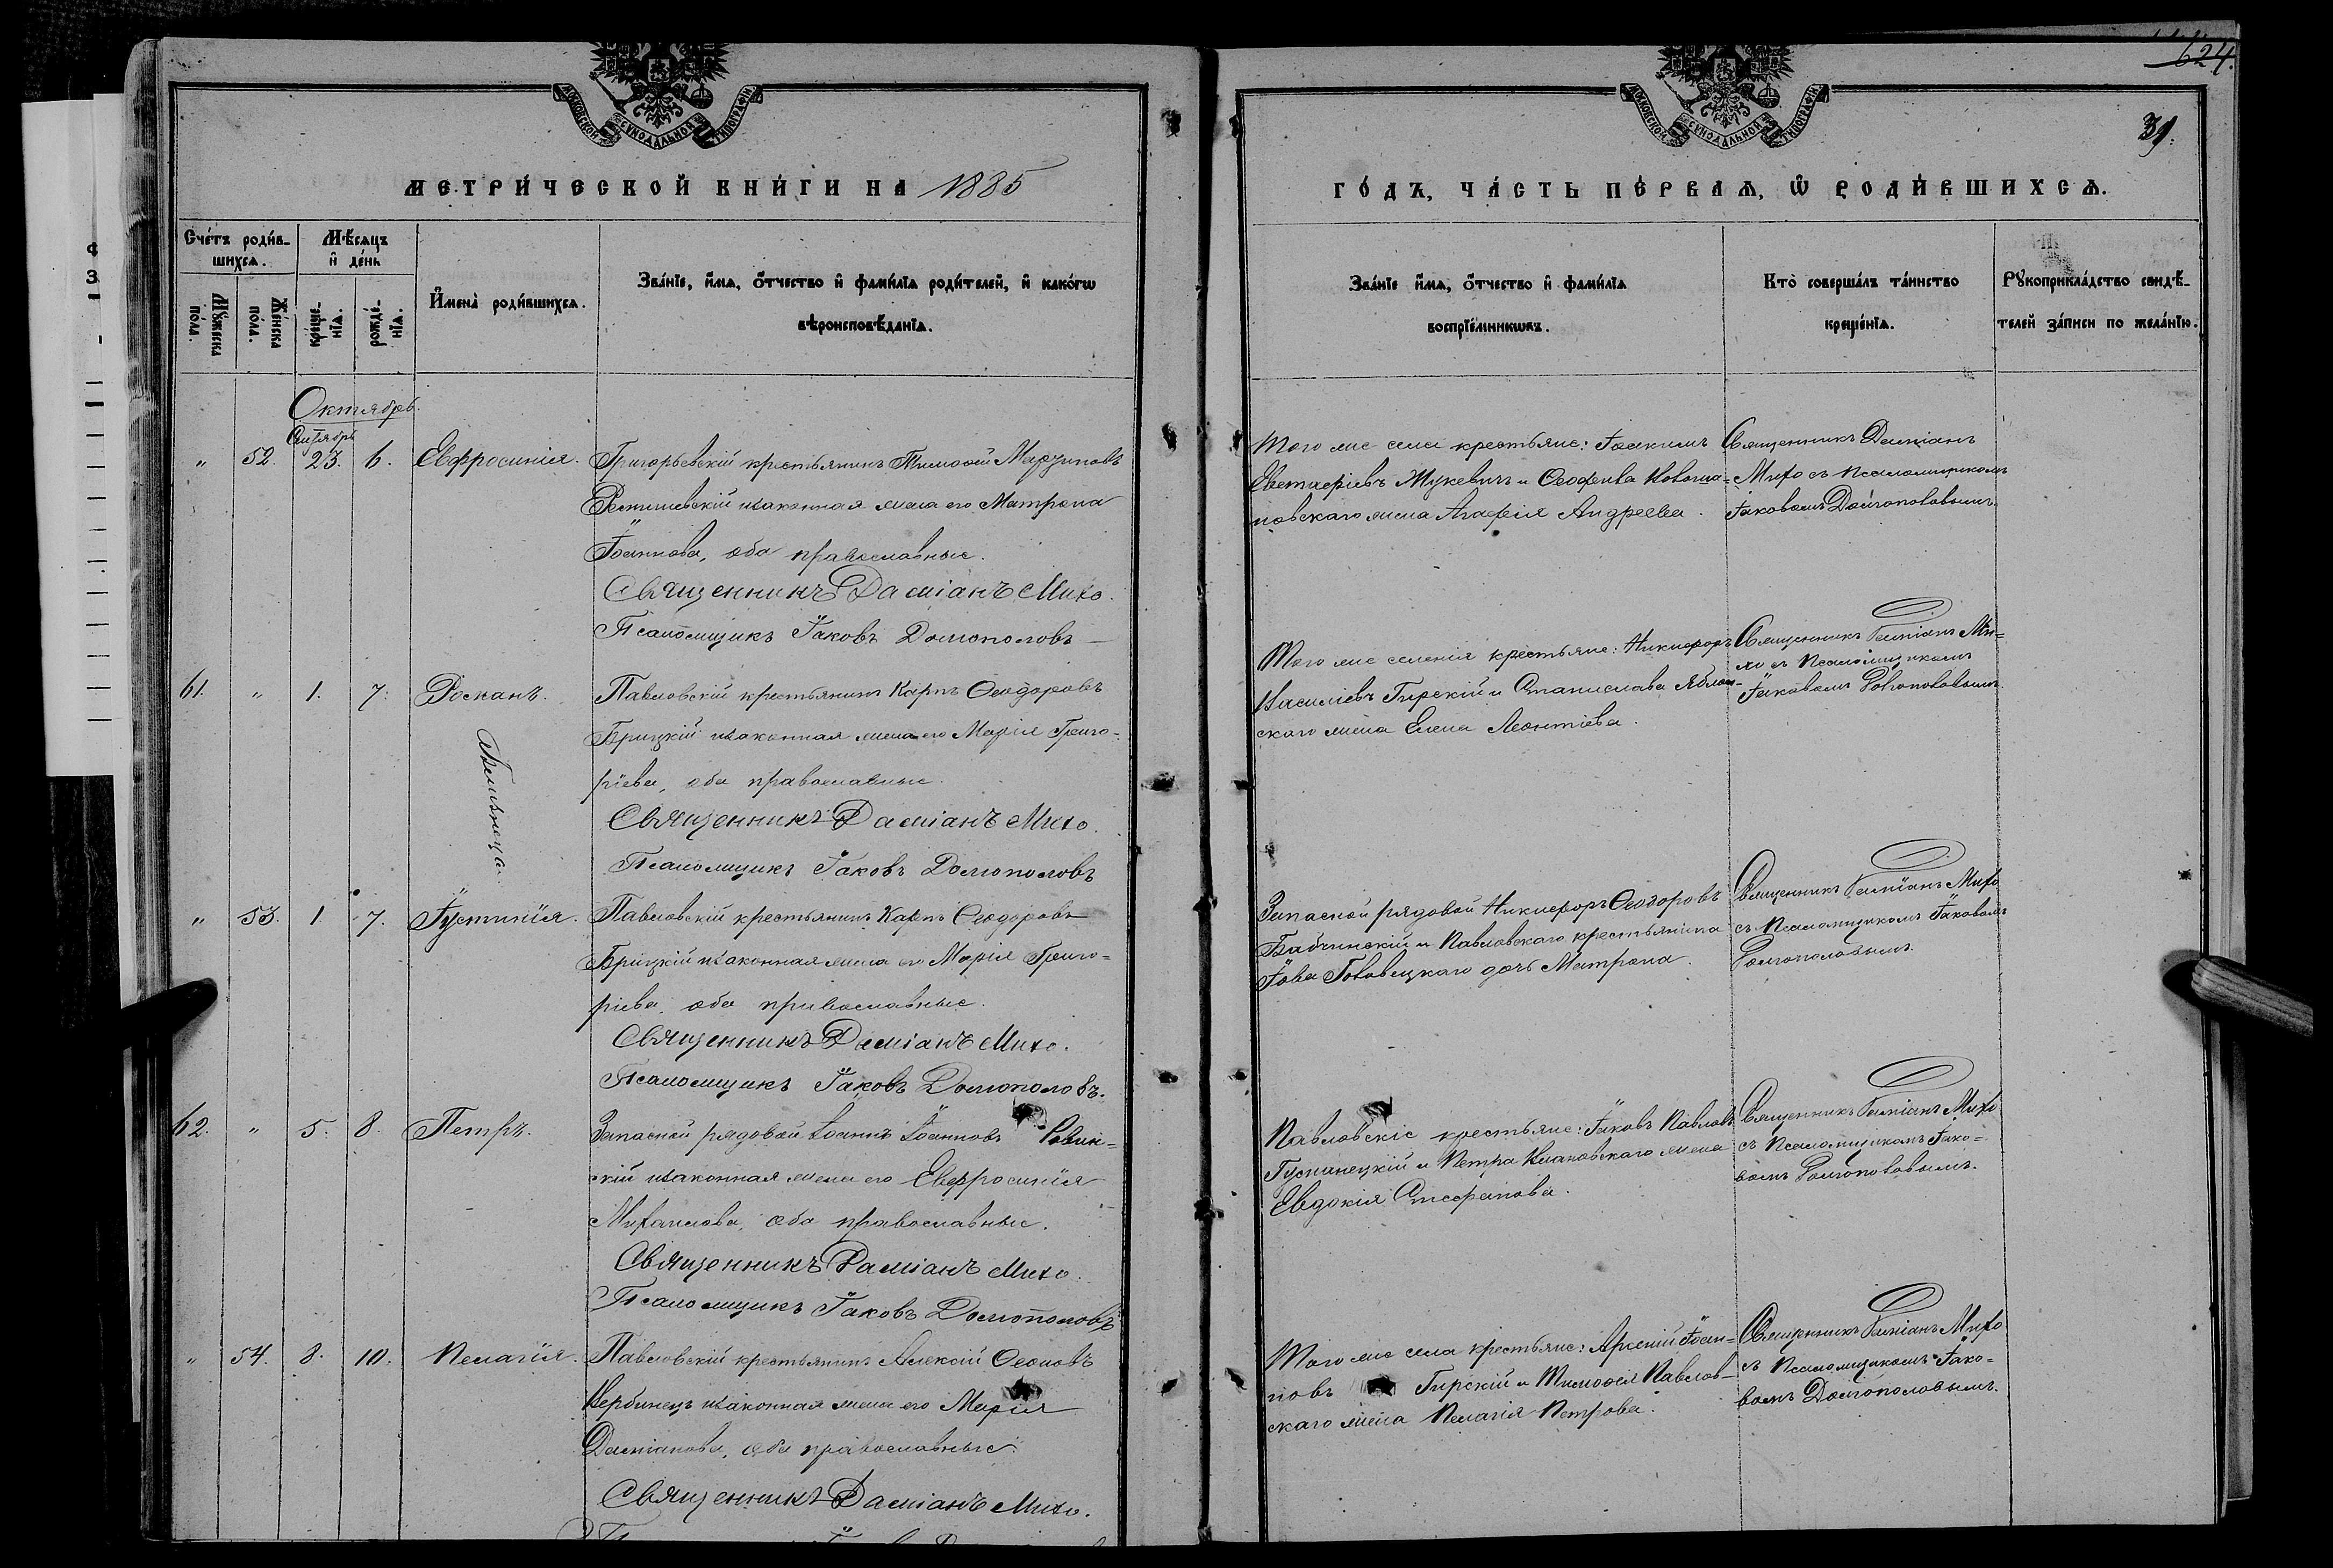 624.
39.
МОСКОВСКОЙ СѴНОДАЛЬНОЙ ТИПОГРАФІИ
МОСКОВСКОЙ СѴНОДАЛЬНОЙ ТИПОГРАФІИ
МЕТРИ́ЧЕСКОЙ КНИ́ГИ НА 1885
ГО́ДЪ, ЧА́СТЬ ПЕ́РВАѦ, Ѡ҆ РОДИ́ВШИХСѦ.
Сче́тъ роди́в-
шихсѧ.
Мꙋ́жеска по́ла.
Же́нска по́ла.
Мѣ́сѧцъ
и҆ де́нь
креще́-
нїѧ.
рожде́-
нїѧ.
И҆мена̀ роди́вшихсѧ.
Зва́нїе, и҆́мѧ, ѻ҆́тчество и҆ фами́лїѧ роди́телей, и҆ како́гѡ
вѣроисповѣ́данїѧ.
Зва́нїе и҆́мѧ, ѻ҆́тчество и҆ фами́лїѧ
воспрїе́мникѡвъ.
Кто̀ соверша́лъ та́инство
креще́нїѧ.
Рꙋкоприкла́дство свидѣ́-
телей за́писи по жела́нїю.
Октябрь.
Сентябрь
" 52. 23. 6. Евфросинія. Григорьевскій крестьянинъ Тимоѳей
и законная жена его Матрона
Іоаннова, оба православные.
Священникъ Даміанъ Михо.
Псаломщикъ Іаковъ Долгополовъ
Того же села крестьяне: Іоакимъ
Евстаѳіевъ Жукевичъ и
жена Агафія Андреева.
Священникъ Даміанъ
Михо съ псаломщикомъ
Іаковомъ Долгополовымъ.
61. " 1. 7. Романъ. Павловскій крестьянинъ Карпъ Ѳеодоровъ
Брицкій и законная жена его Марія Григо-
ріева, оба православные.
Священникъ Даміанъ Михо.
Псаломщикъ Іаковъ Долгополовъ
Близнецы.
Того же селенія крестьяне: Никифоръ
Василіевъ Гирскій и Станислава Яблон-
скаго жена Елена Леонтіева.
Священникъ Даміанъ Ми-
хо съ псаломщикомъ
Іаковомъ Долгополовымъ.
" 53. 1. 7. Іустинія. Павловскій крестьянинъ Карпъ Ѳеодоровъ
Брицкій и законная жена его Марія Григо-
ріева, оба православные.
Священникъ Даміанъ Михо.
Псаломщикъ Іаковъ Долгополовъ.
Запасной рядовой Никифоръ Ѳеодоровъ
Бабчинскій и Павловскаго крестьянина
Іова Головецкаго дочь Матрона.
Священникъ Даміанъ Михо
съ псаломщикомъ Іаковомъ
Долгополовымъ.
62. " 5. 8. Петръ. Запасной рядовой Іоаннъ Іоанновъ Ровин-
скій и законная жена его Евфросинія
Михаилова, оба православные.
Священникъ Даміанъ Михо.
Псаломщикъ Іаковъ Долгополовъ
Павловскіе крестьяне: Іаковъ Павловъ
и Петра жена
Евдокія Стефанова.
Священникъ Даміанъ Михо
съ псаломщикомъ Іако-
вомъ Долгополовымъ.
" 54. 8. 10. Пелагія. Павловскій крестьянинъ Алексій
Вербинецъ и законная жена его Марія
Даміанова, оба православные.
Священникъ Даміанъ Михо.
Того же села крестьяне: Арсеній Іоан-
новъ Гирскій и Тимоѳея Павлов-
скаго жена Пелагія Петрова.
Священникъ Даміанъ Михо
съ псаломщикомъ Іако-
вомъ Долгополовымъ.